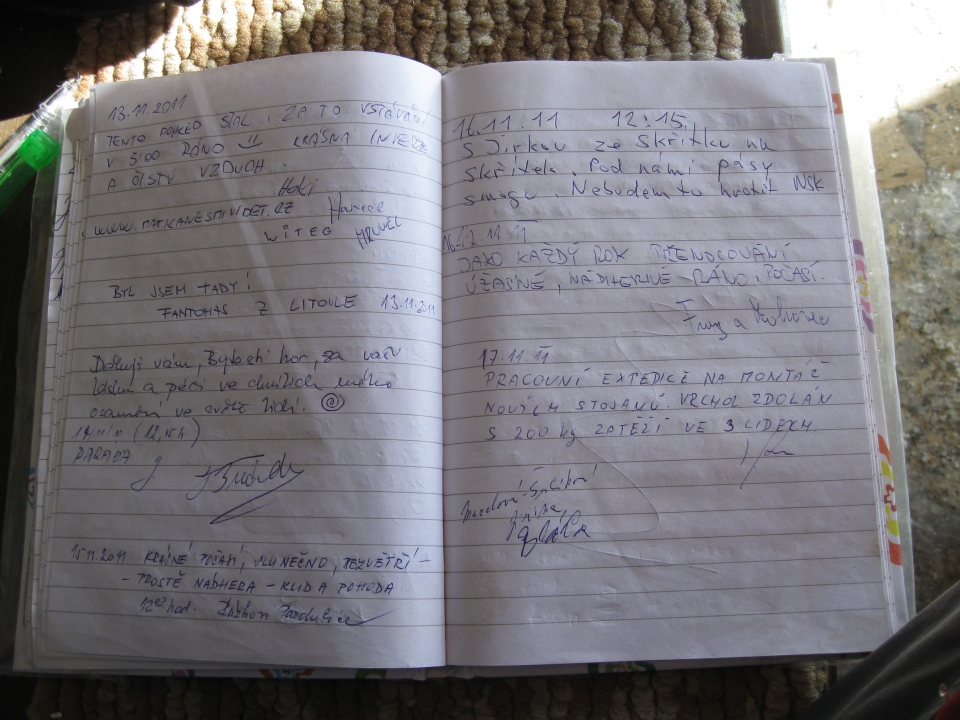 13.11.2011
TENTO POHLED STÁL ZA TO VSTÁVÁNÍ
V 5:00 RÁNO !! KRÁSNÁ INVERZE
A ČISTÝ VZDUCH.
WITEG
BYL JSEM TADY!
FANTOMAS Z LITOVLE 13.11.2011
Děkuji vám, hor, za vaši
a péči ve chvílích mého
osamění ve světě lidí.
PARÁDA
15.11.2011 KRÁSNÉ POČASÍ, SLUNEČNO, BEZVĚTŘÍ -
- PROSTĚ NÁDHERA - KLID A POHODA
12 hod. Pardubice
16.11.11 12:15
S Jirkou ze Skřítku na
Skřítek. Pod námi pásy
smogu. Nebudem to hrotit NSK
JAKO KAŽDÝ ROK PŘENOCOVÁNÍ
ÚŽASNÉ, NÁDHERNÉ RÁNO, POČASÍ.
17.11.11
PRACOVNÍ EXPEDICE NA MONTÁŽ
NOVÝCH STOJANŮ. VRCHOL ZDOLÁN
S 200 kg ZÁTĚŽÍ VE 3 LIDECH.